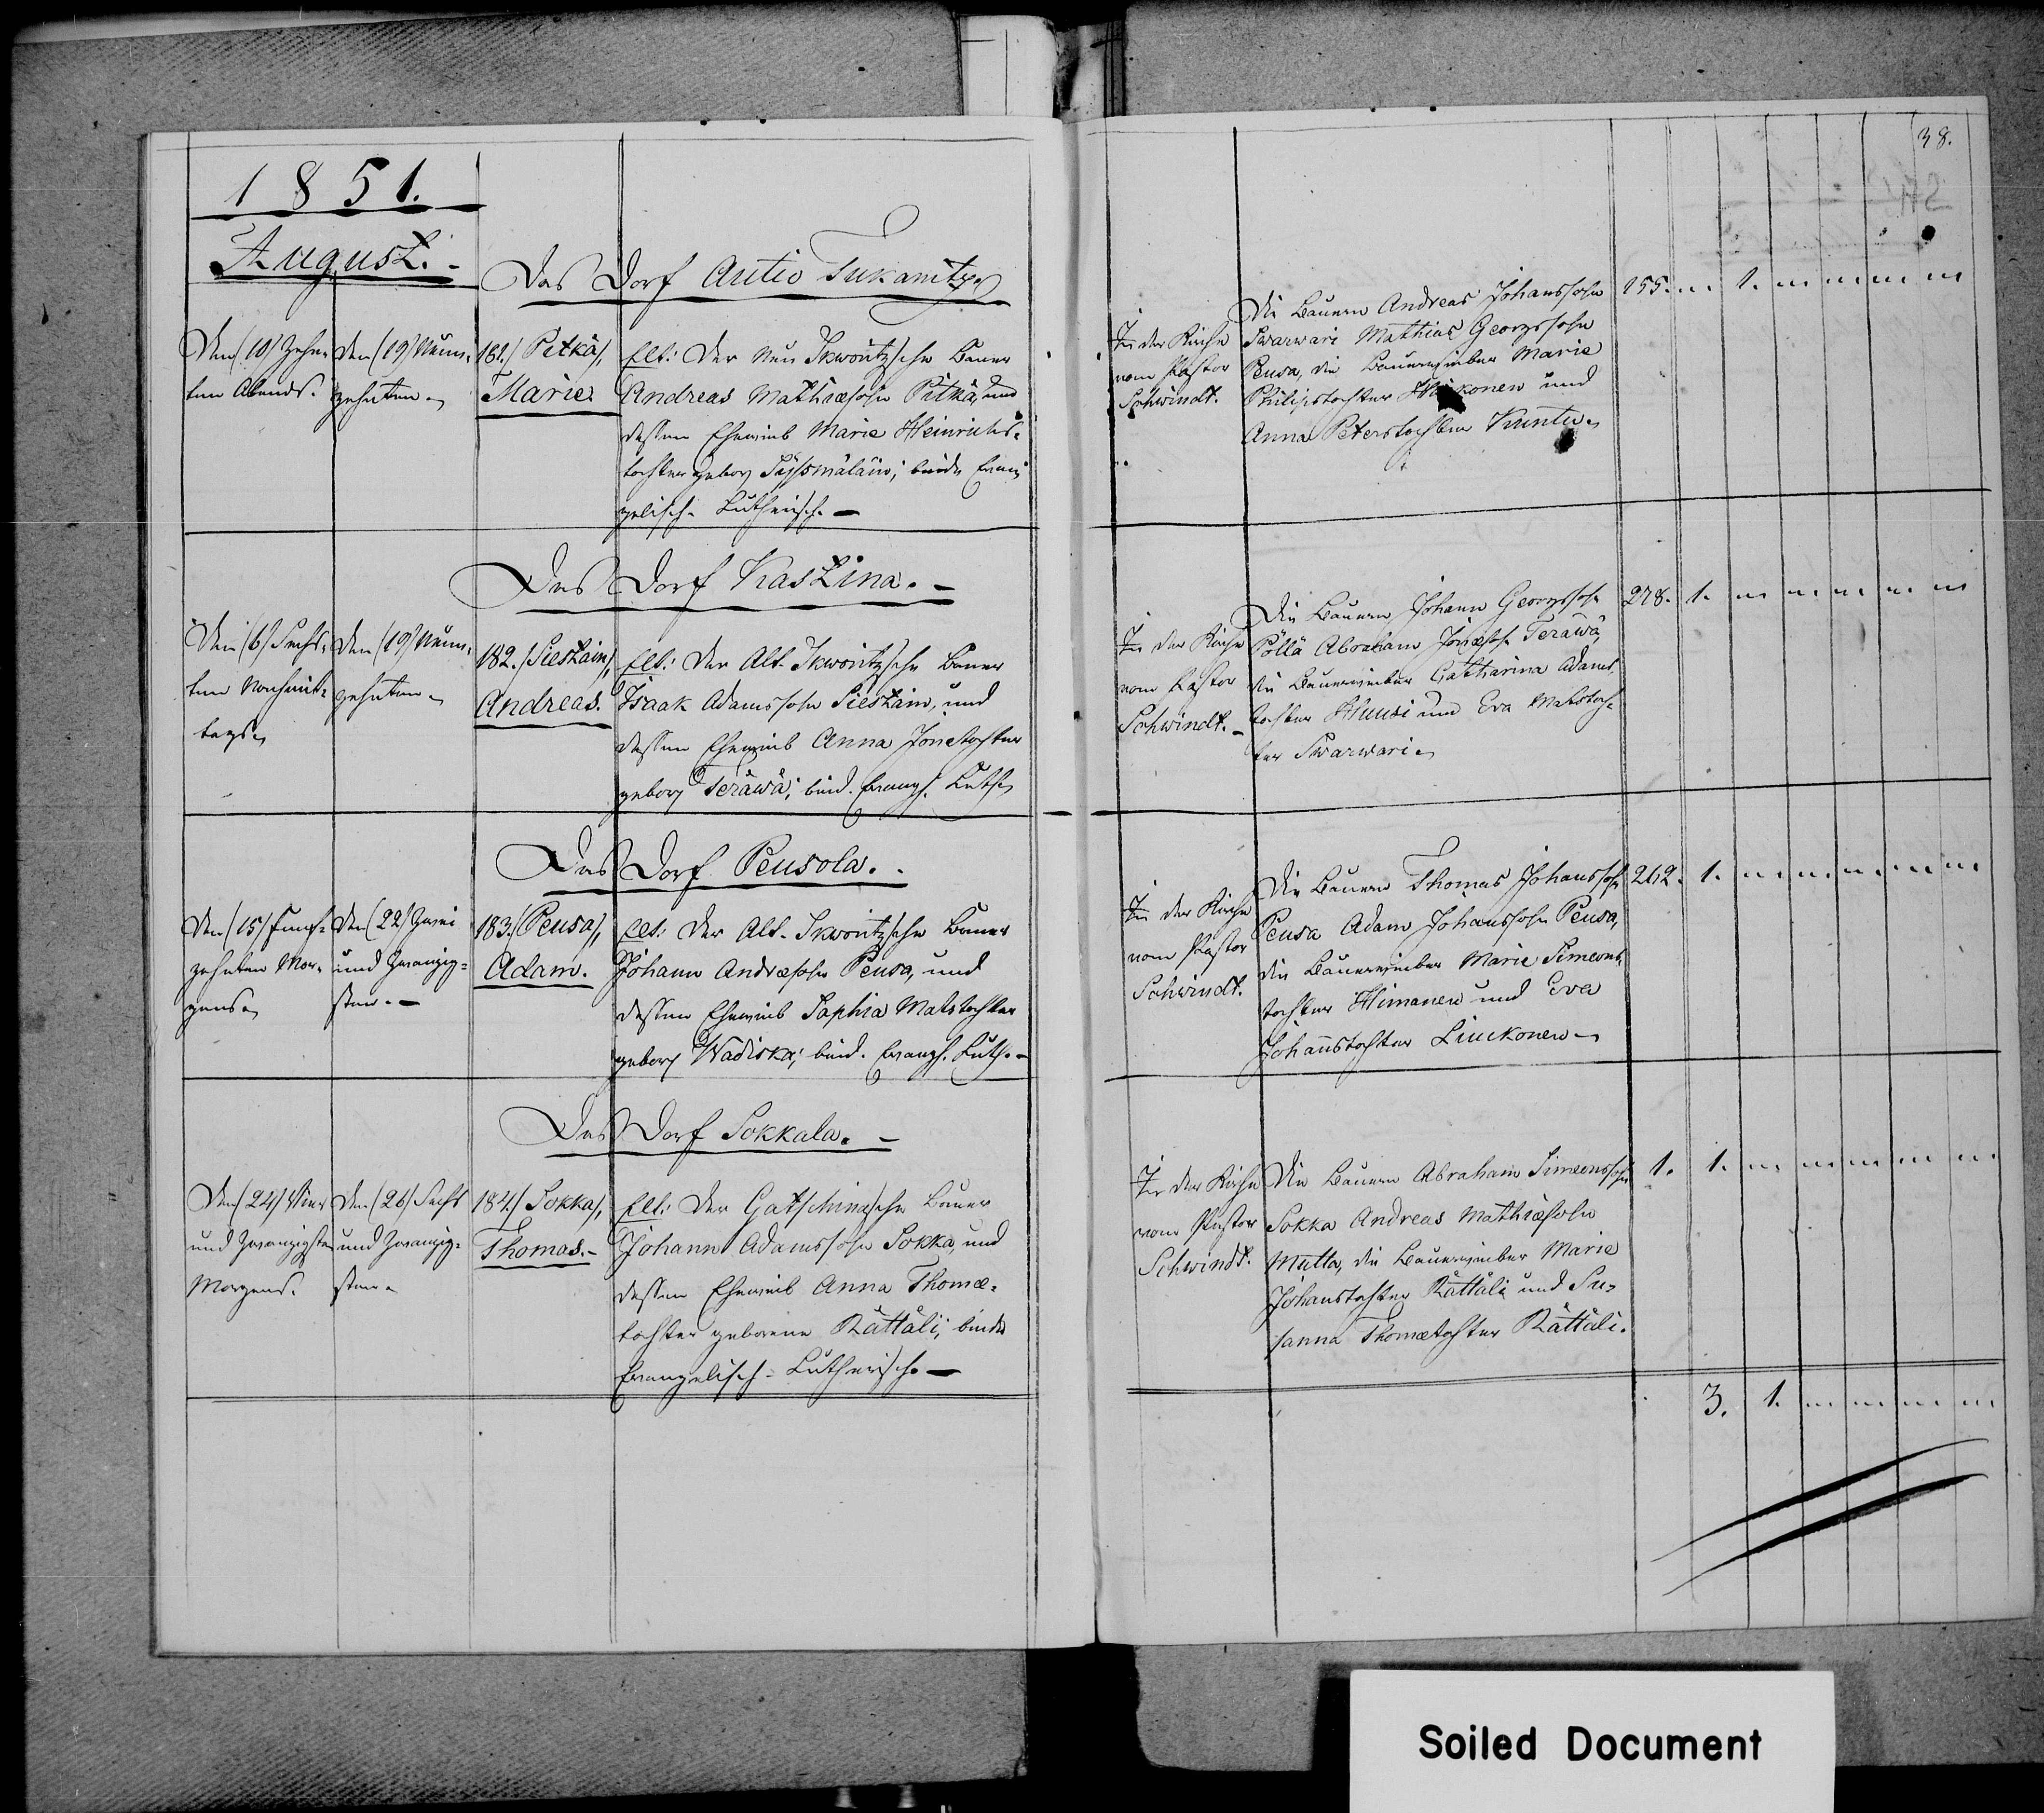 1851.
August. -
Das Dorf Autio Tukanitza
Den (10) Zehn-
ten Abends.
den (19) Neun-
zehnten
181./ Petkä/,
Marie.
Elt: Der Neu Skworitzsche Bauer
Andreas Mathiæsohn Pitkä, und
dessen Eheweib Marie Heinrichs-
tochter gebor. ; beide Evan-
gelisch-Lutherisch. -
Das Dorf Kaskina. -
Den (6) Sechs-
ten Nachmit-
tags
den (19) Neun-
zehnten
182./ Sieskäin/,
Andreas.
Elt: Der Alt Skworitzsche Bauer
Isaak Adamssohn Sieskäin, und
dessen Eheweib Anna Jonætochter
gebor. Teräwä; beid. Evangl. Luth.
Das Dorf Peusola. -
Den (15) Funf-
zehnten Mor-
gens
den (22) Zwei
und Zwanzig-
sten. -
183./ Peusa/,
Adam.
Elt: Der Alt-Skworitzsche Bauer
Johann Andræsohn Peusa, und
dessen Eheweib Sophia Matstochter
gebor. Wadiska; beid. Evangl. Luth. -
Das Dorf Sokkala. -
Den (24) Vier
und Zwanzigsten
Morgens.
den (26) Sechs
und Zwanzig-
sten
184./ Sokka/,
Thomas. -
Elt: Der Gatschinasche Bauer
Johann Adamssohn Sokka, und
dessen Eheweib Anna Thomæ-
tochter geborene Rättäli; beide
Evangelisch-Lutherisch. -
38.
In der Kirche
vom Pastor
Schwindt.
Die Bauern Andreas Johanssohn
Swarwari Mathias Georgssohn
Peusa, die Bauerweiber Marie
Philipstochter und
Anna Peterstochter Kuntu
155. 1.
In der Kirche
vom Pastor
Schwindt. -
Die Bauern Johann Georgssohn
Pöllä Abraham Jonæsohn Teräwä,
die Bauerweiber Catharina Adams-
tochter Huusi und Eva Matstoch-
ter Swarwari
278. 1.
In der Kirche
vom Pastor
Schwindt.
Die Bauern Thomas Johanssohn
Peusa Adam Johanssohn Peusa,
die Bauerweiber Marie Simeons-
tochter Himanen und Eva
Johanstochter Liuckonen
262. 1.
In der Kirche
vom Pastor
Schwindt.
Die Bauern Abraham Simeonssohn
Sokka Andreas Mathiæsohn
Mutta, die Bauerweiber Marie
Johanstochter Rättäli und Su-
sanna Thomætochter Rättäli.
1. 1.
3. 1.
Soiled Document